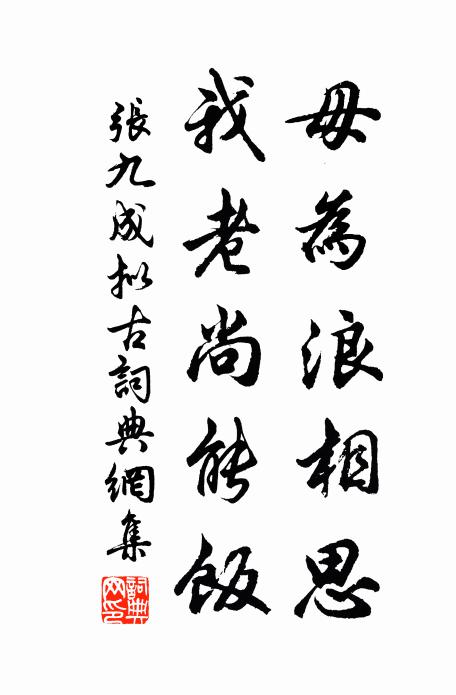 毋為浪相思
我老尚能飯
張九成拟古詞典網集
詞典網印